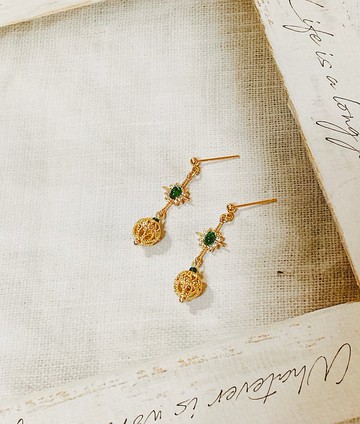 Life is a long
Whatever is wor